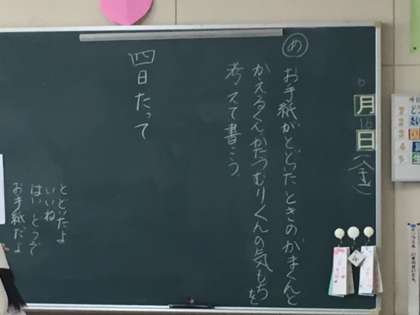 月
日(金)
め お手紙がとどいたときのがまくんと
かえるくん、かたつむりくんの気もちを
考えて書こう。
四日たって
とどいたよ
いいね
はい、どうぞ
お手紙だよ